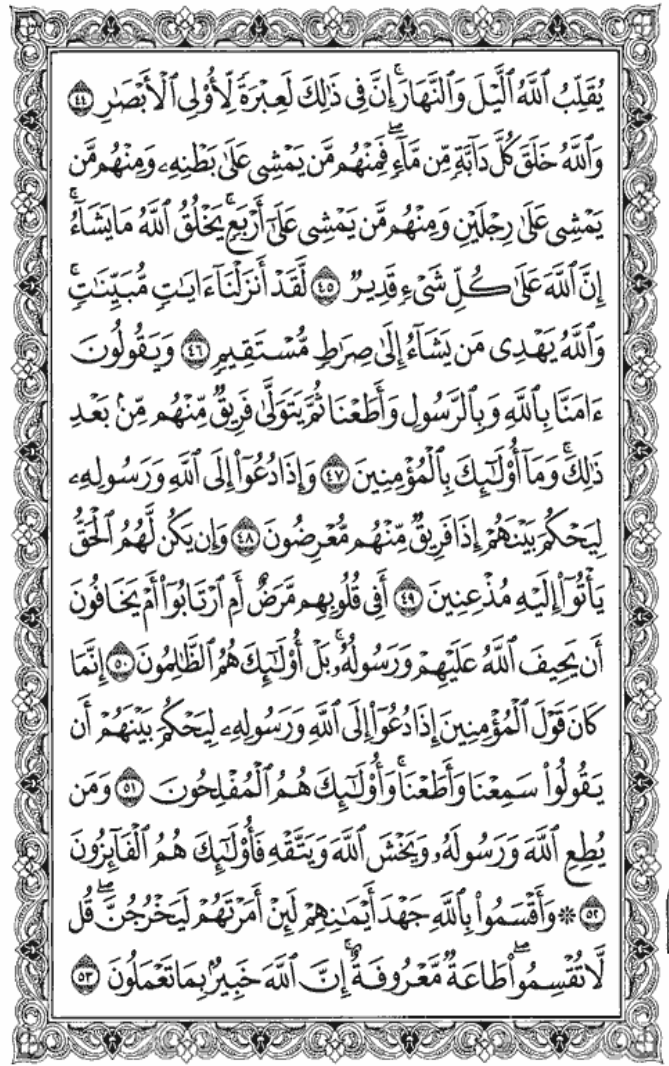 يُقَلِّبُ ٱللَّهُ ٱلَّيۡلَ وَٱلنَّهَارَۚ إِنَّ فِي ذَٰلِكَ لَعِبۡرَةٗ لِّأُوْلِي ٱلۡأَبۡصَٰرِ ٤٤
وَٱللَّهُ خَلَقَ كُلَّ دَآبَّةٖ مِّن مَّآءٖۖ فَمِنۡهُم مَّن يَمۡشِي عَلَىٰ بَطۡنِهِۦ وَمِنۡهُم مَّن
يَمۡشِي عَلَىٰ رِجۡلَيۡنِ وَمِنۡهُم مَّن يَمۡشِي عَلَىٰٓ أَرۡبَعٖۚ يَخۡلُقُ ٱللَّهُ مَا يَشَآءُۚ
إِنَّ ٱللَّهَ عَلَىٰ كُلِّ شَيۡءٖ قَدِيرٞ ٤٥ لَّقَدۡ أَنزَلۡنَآ ءَايَٰتٖ مُّبَيِّنَٰتٖۚ
وَٱللَّهُ يَهۡدِي مَن يَشَآءُ إِلَىٰ صِرَٰطٖ مُّسۡتَقِيمٖ ٤٦ وَيَقُولُونَ
ءَامَنَّا بِٱللَّهِ وَبِٱلرَّسُولِ وَأَطَعۡنَا ثُمَّ يَتَوَلَّىٰ فَرِيقٞ مِّنۡهُم مِّنۢ بَعۡدِ
ذَٰلِكَۚ وَمَآ أُوْلَٰٓئِكَ بِٱلۡمُؤۡمِنِينَ ٤٧ وَإِذَا دُعُوٓاْ إِلَى ٱللَّهِ وَرَسُولِهِۦ
لِيَحۡكُمَ بَيۡنَهُمۡ إِذَا فَرِيقٞ مِّنۡهُم مُّعۡرِضُونَ ٤٨ وَإِن يَكُن لَّهُمُ ٱلۡحَقُّ
يَأۡتُوٓاْ إِلَيۡهِ مُذۡعِنِينَ ٤٩ أَفِي قُلُوبِهِم مَّرَضٌ أَمِ ٱرۡتَابُوٓاْ أَمۡ يَخَافُونَ
أَن يَحِيفَ ٱللَّهُ عَلَيۡهِمۡ وَرَسُولُهُۥۚ بَلۡ أُوْلَٰٓئِكَ هُمُ ٱلظَّٰلِمُونَ ٥٠ إِنَّمَا
كَانَ قَوۡلَ ٱلۡمُؤۡمِنِينَ إِذَا دُعُوٓاْ إِلَى ٱللَّهِ وَرَسُولِهِۦ لِيَحۡكُمَ بَيۡنَهُمۡ أَن
يَقُولُواْ سَمِعۡنَا وَأَطَعۡنَاۚ وَأُوْلَٰٓئِكَ هُمُ ٱلۡمُفۡلِحُونَ ٥١ وَمَن
يُطِعِ ٱللَّهَ وَرَسُولَهُۥ وَيَخۡشَ ٱللَّهَ وَيَتَّقۡهِ فَأُوْلَٰٓئِكَ هُمُ ٱلۡفَآئِزُونَ
٥٢ ۞ وَأَقۡسَمُواْ بِٱللَّهِ جَهۡدَ أَيۡمَٰنِهِمۡ لَئِنۡ أَمَرۡتَهُمۡ لَيَخۡرُجُنَّۖ قُل
لَّا تُقۡسِمُواْۖ طَاعَةٞ مَّعۡرُوفَةٌۚ إِنَّ ٱللَّهَ خَبِيرُۢ بِمَا تَعۡمَلُونَ ٥٣